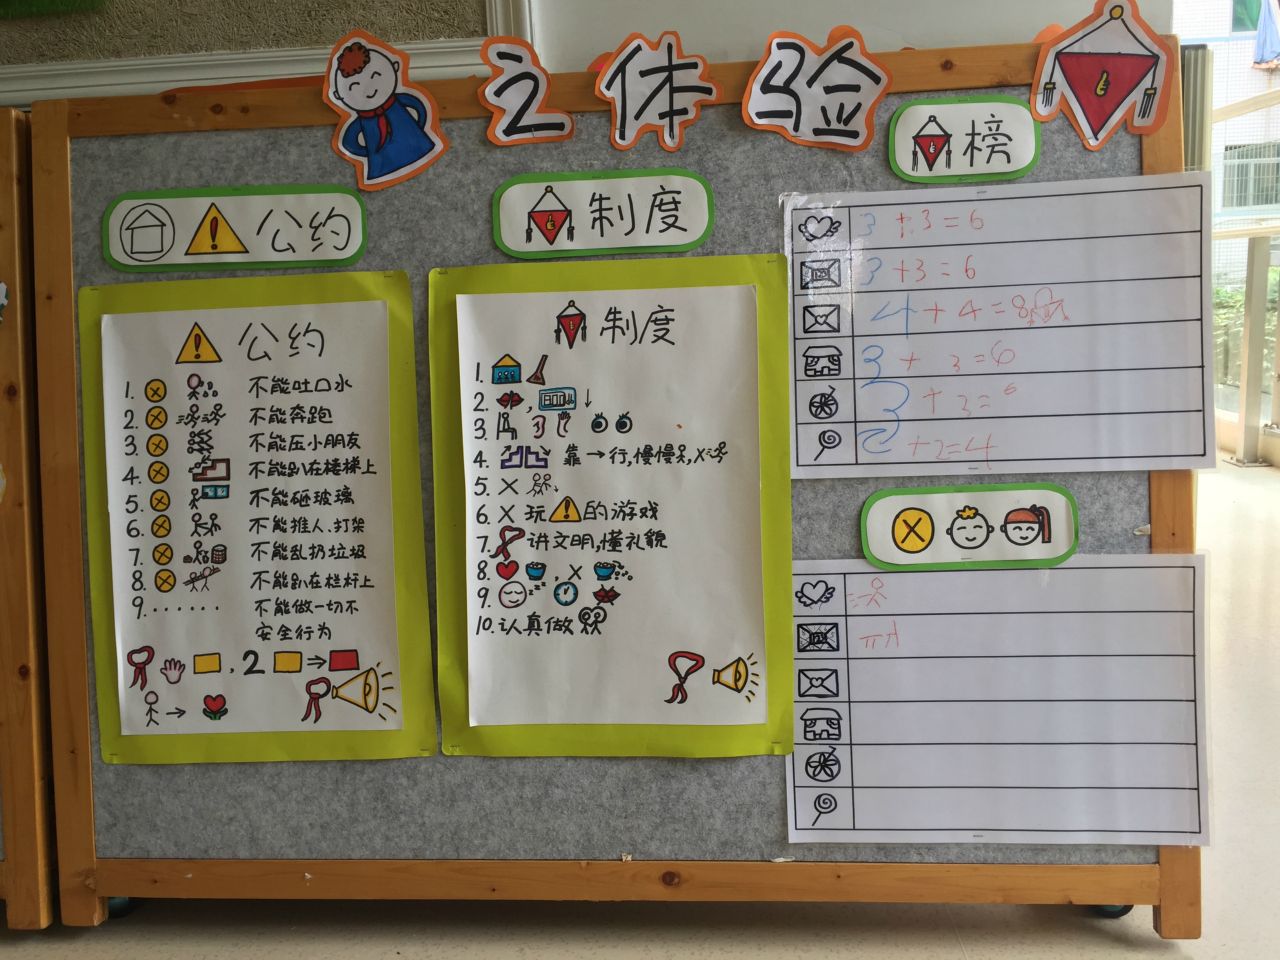 之体验
公约
制度
榜
公约
1. 不能吐口水
2. 不能奔跑
3. 不能压小朋友
4. 不能趴在楼梯上
5. 不能砸玻璃
6. 不能推人、打架
7. 不能乱扔垃圾
8. 不能趴在栏杆上
9. ······· 不能做一切不
安全行为
, 2 →
→
制度
1.
2. , ↓
3.
4. 靠→行,慢慢, X
5. X
6. X 玩 的游戏
7. 讲文明,懂礼貌
8. , X
9.
10. 认真做
3+3=6
3+3=6
4+4=8
3+3=6
3+3=6
2+2=4
X